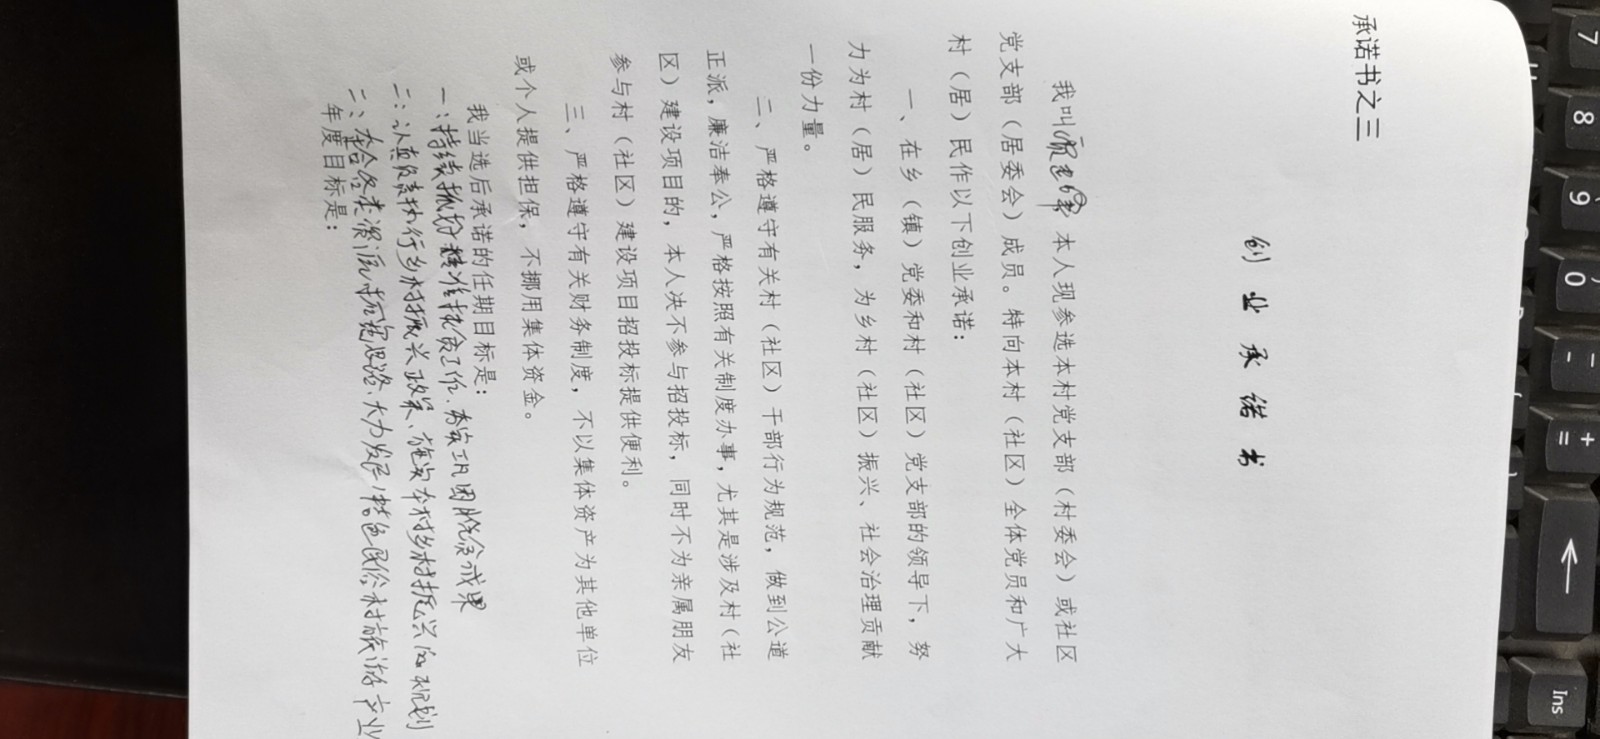 承诺书之三
创业承诺书
我叫 本人现参选本村党支部（村委会）或社区
党支部（居委会）成员。特向本村（社区）全体党员和广大
村（居）民作以下创业承诺：
一、在乡（镇）党委和村（社区）党支部的领导下，努
力为村（居）民服务，为乡村（社区）振兴、社会治理贡献
一份力量。
二、严格遵守有关村（社区）干部行为规范，做到公道
正派，廉洁奉公，严格按照有关制度办事，尤其是涉及村（社
区）建设项目的，本人决不参与招投标，同时不为亲属朋友
参与村（社区）建设项目招投标提供便利。
三、严格遵守有关财务制度，不以集体资产为其他单位
或个人提供担保，不挪用集体资金。
我当选后承诺的任期目标是：
一：持续抓好精准扶贫工作、夯实巩固脱贫成果
二：认真负责执行乡村振兴政策、施实本村乡村振兴的规划
三：本合各类资源 思路、大力发展特色民俗村旅游产业
年度目标是：
7
8
9
0
-
+
=
Ins